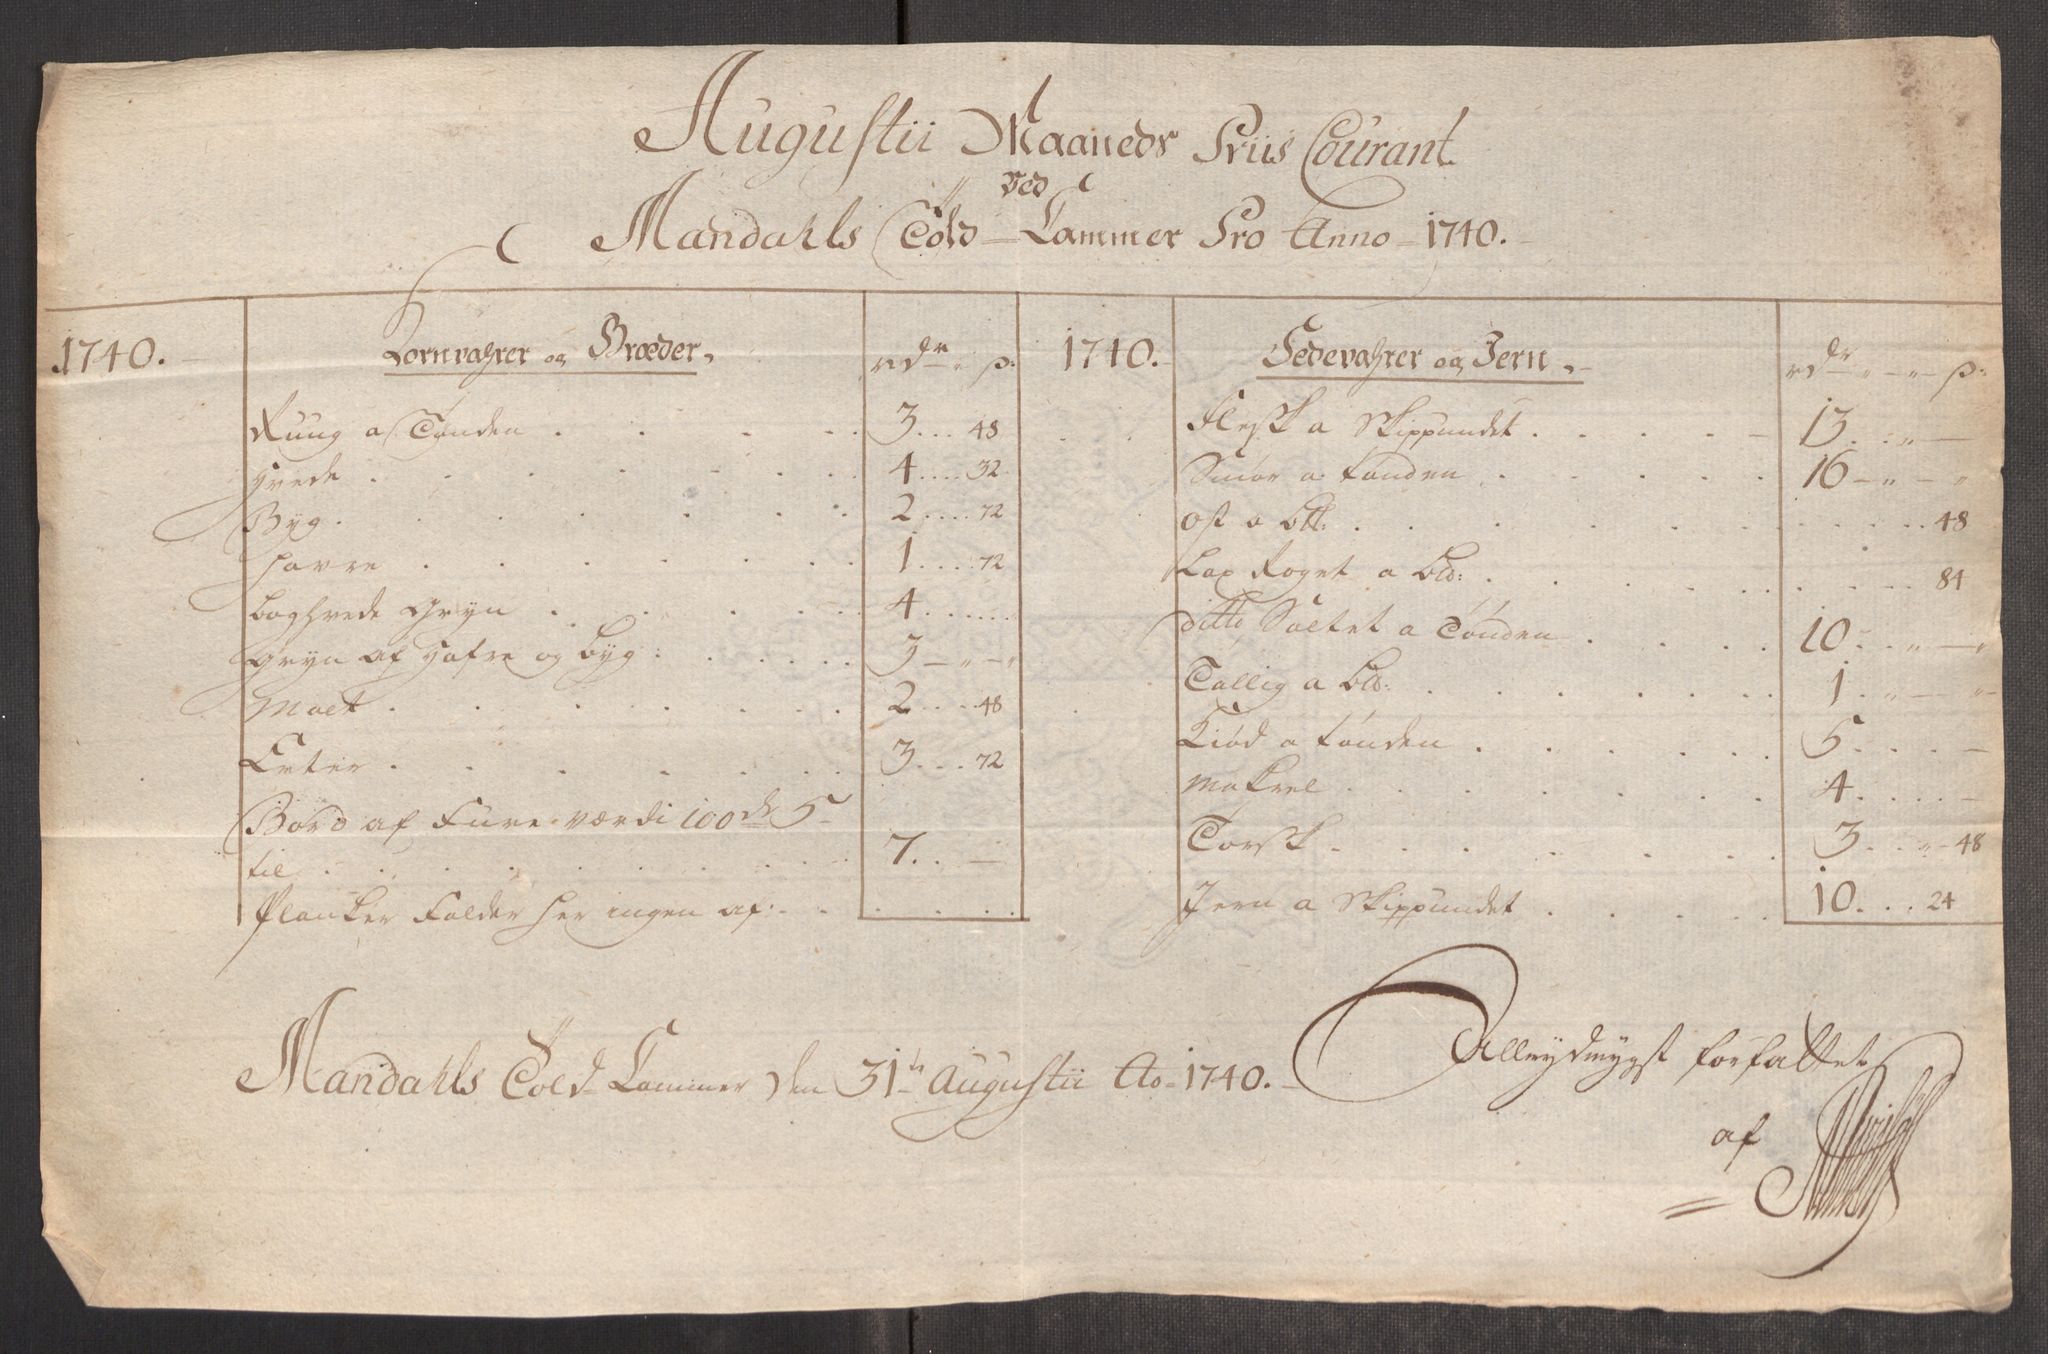 Augustii Maaneds Priis Courant
ved
Mandahls Told-Cammer Pro Anno-1740.
1740. Kornvahrer og Bræder. rdr ß:
Ruug a Tønden 3 48
Hvede 4 32
Byg 2 72
Havre 1 72
Boghvede Gryn 4
Gryn af Hafre og byg: 3 - " - "
Malt 2 48
Erter 3 72
Bord af Furre værdi 100de 5
til 7. -
Planker Falder her ingen af:
1740. Fedevahrer og Jern. rdr " ß:
Flesk a Skippundet 13. " -
Smør a tønden 16 - " - "
Ost a Bll: 48
Lax Røget a bld: 84
ditto Saltet a Tønden 10 - " - "
Tallig a bld: 1. " - "
Kiød a tønden 5 -
Makrel 4 -
Torsk 3 48
Jern a Skippundet 10 24
Mandahls Told-Cammer den 31te Augustii Ao-1740.
Allerydmygst forfattet
af